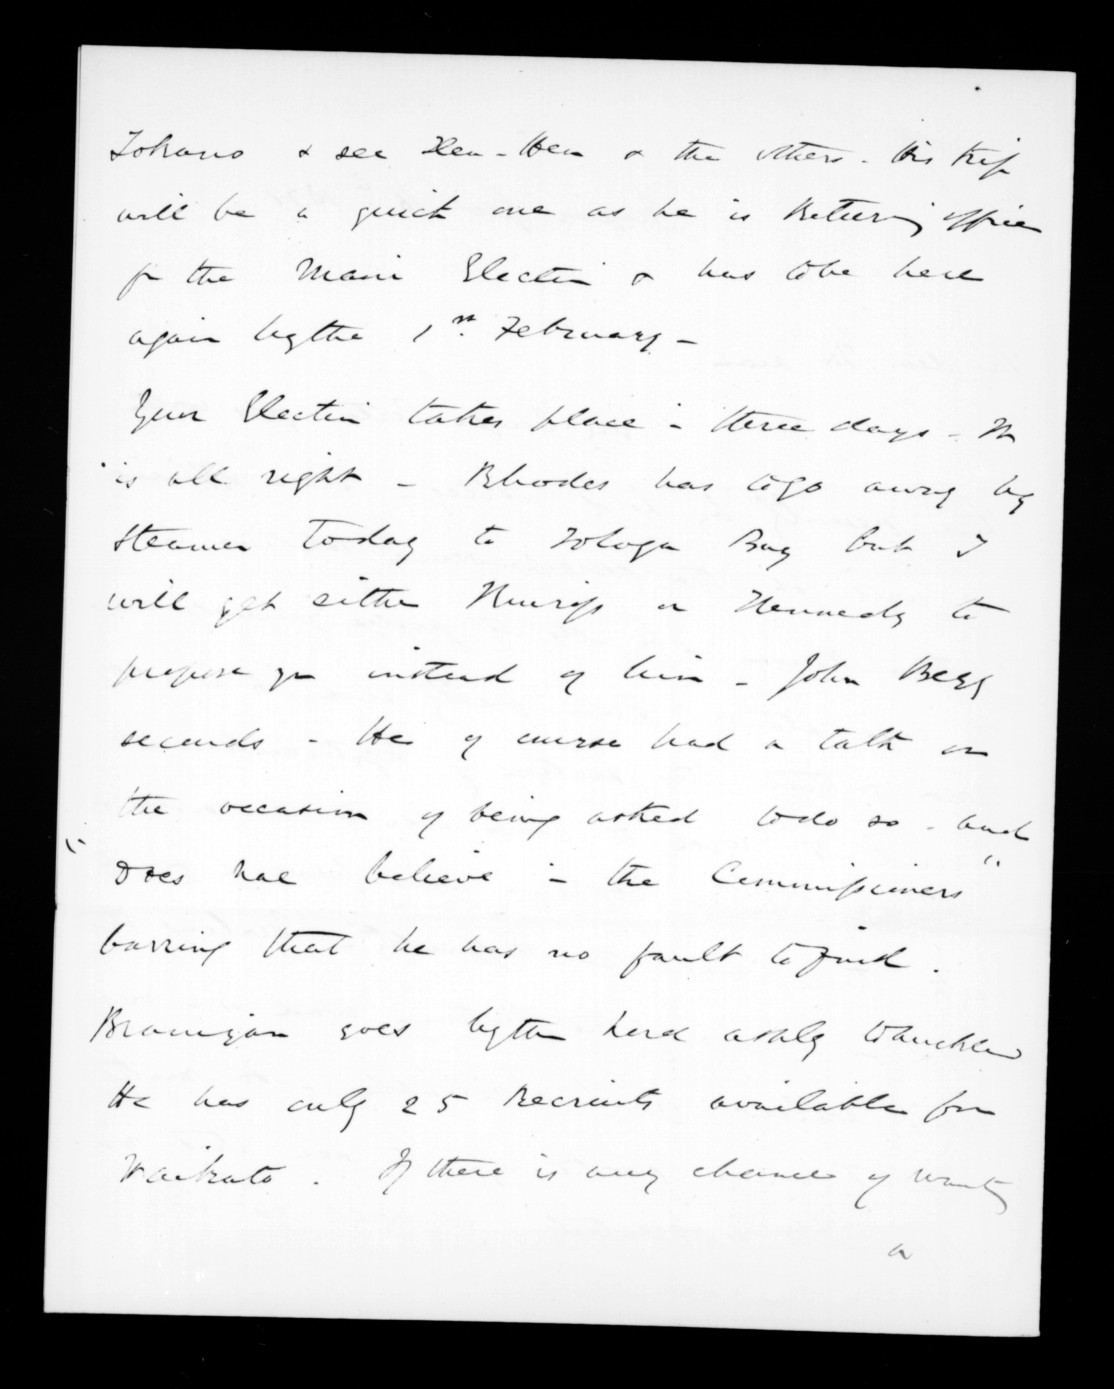 Tokano & see Heu-Heu & the others. His trip
will be a quick one as he is Returning officer
for the Maori Election & has to be here
again by the 1st February -
Your Election takes place in three days - It
is all right - Rhodes has to go away by
steamer today to Tologa Bay but I
will get either or Kennedy to
propose you instead of him - John Begg
seconds - He of course had a talk on
the occasion of being asked to do so - and
"does not believe in the Commissioners"
barring that he has no fault to find.
Branigan goes by the Lord Ashly to Auckland
He has only 25 Recruits available for
Waikato. If there is any chance of wanting
a